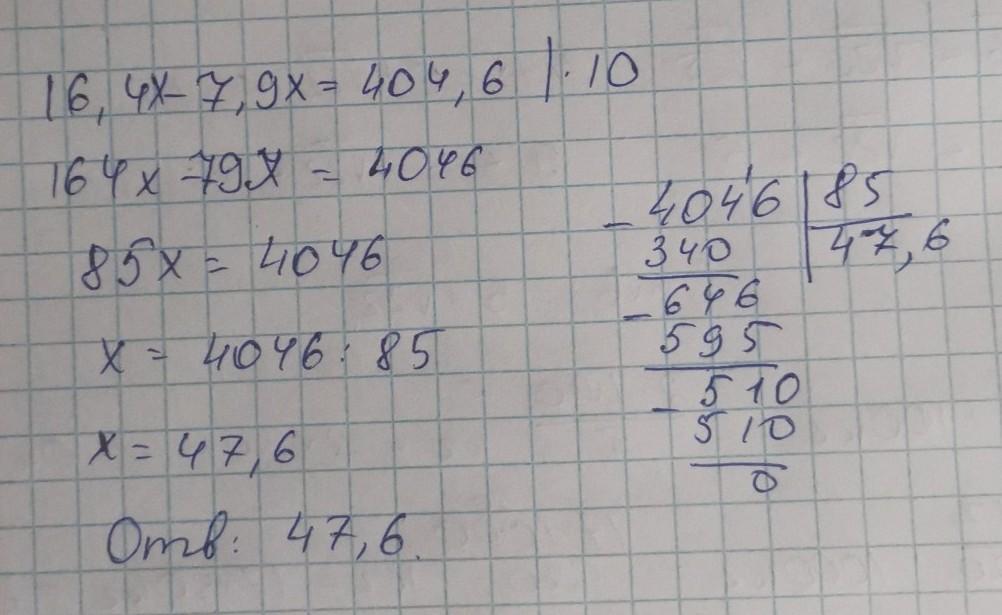 16,4x-7,9x=404,6 |·10
164x-79x=4046
85x=4046
x=4046:85
x=47,6
Отв: 47,6.
-4046 |85
340 |47,6
-646
595
-510
510
0